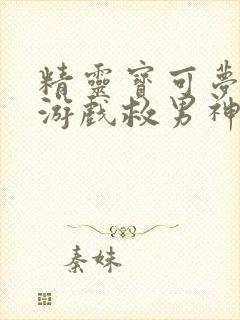 精靈寶可夢
游戲救男神
秦妹